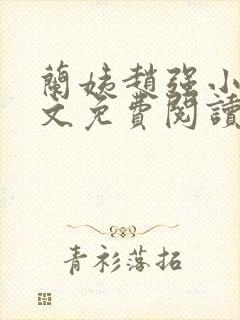 蘭姨趙强小
文免費閱讀
青衫落拓